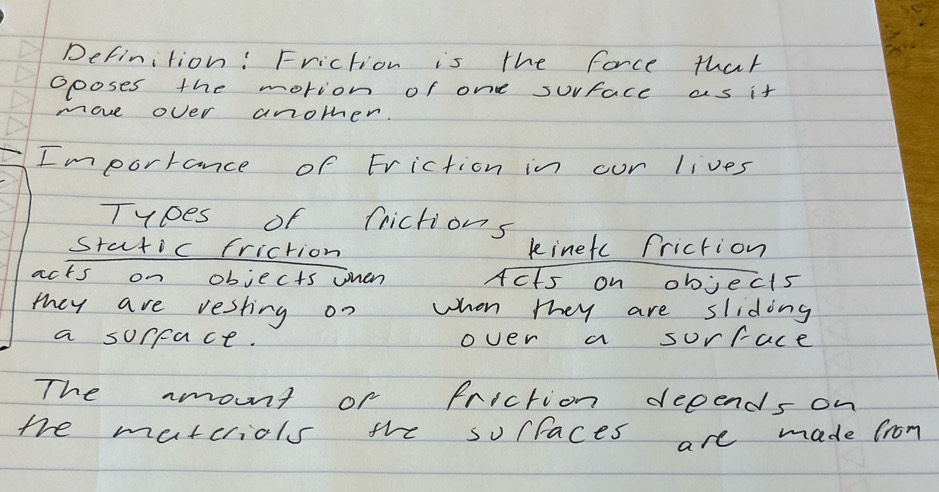 Definition: Friction is the force that
oposes the motion of one surface as it
move over another.
Importance of Friction in our lives
Types of frictions
Static friction
acts on objects when
they are resting on
a surface.
kinetc friction
Acts on objects
when they are sliding
over a surface
The amount of friction depends on
the materials the surfaces are made from